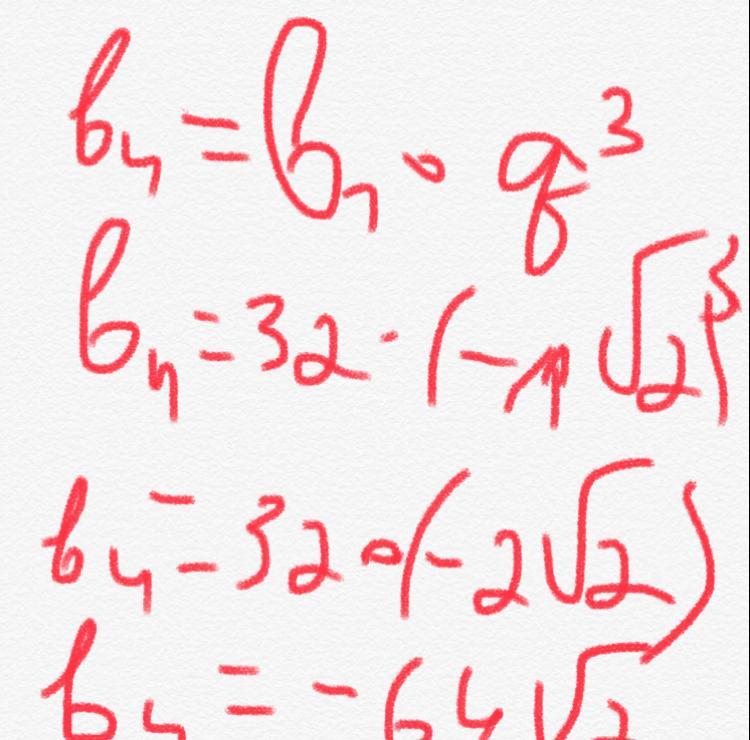 b₄ = b₁ · q³
b₄ = 32 · (-1√2)³
b₄ = 32 · (-2√2)
b₄ = -64√2